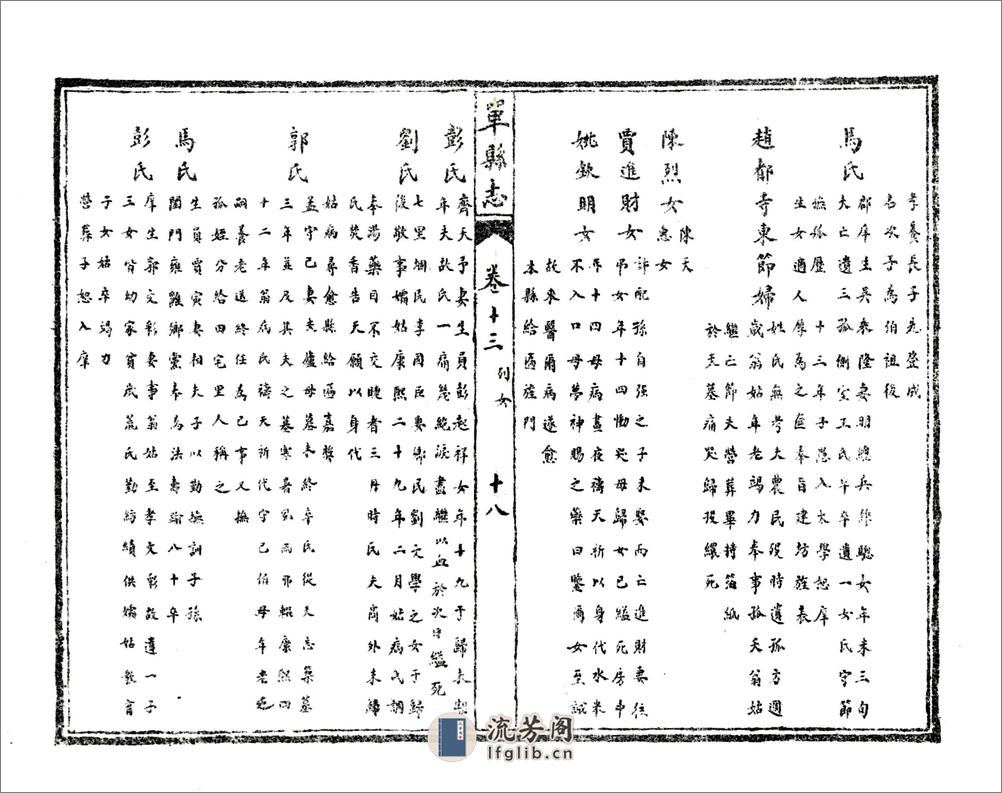 孝養長子先登成
名次子為伯祖後
馬氏
郡庠生吳泰隆妻明總兵維聰女年未三旬
夫亡遺三孤側室王氏午卒遺一女氏守節
撫孤歷十三年子愚入太學恕庠
生女適人庠為之匾奉旨建坊旌表
趙都寺東節婦
姓氏無考夫農民歿時遺孤方週
歲翁姑年老竭力奉事孤夭翁姑
繼亡節夫營葬畢持箔紙
於夫墓痛哭歸投繯死
陳烈女 陳天惠女
賈進財女
許配孫自强之子未娶而亡進財妻往
弔女年十四慟哭母歸女已縊死房中
姚欽明女
年十四母病晝夜禱天祈以身代水米
不入口母夢神賜之藥曰鑒爾女至誠
託來醫爾病遂愈
本縣給匾旌門
單縣志
卷十三
列女
十八
彭氏
齊天予妻生員彭起祥女年十九于歸未
年夫故氏一痛幾絶淚盡繼以血於次日縊死
劉氏
七里烟民李國臣妻鄉民劉文學之女于歸
後敬事孀姑康熙二十九年二月姑病氏調
奉湯藥目不交睫者三月時氏夫商外未歸
氏焚香告天願以身代
姑病尋愈縣給匾嘉獎
郭氏
孟守己妻夫廬母墓未終卒氏從夫志築墓
三年並及其夫之墓寒暑風雨弗輟康熙四
十二年翁疾氏禱天祈代守己伯母年老
嗣養老送終任為己事又撫
孤姪分給田宅里人稱之
馬氏
生員賈寅妻相夫子以勤撫訓子孫
閨門雍雝鄉黨奉為法壽踰八十卒
彭氏
庠生郭文彩妻事翁姑至孝文彩故遺一子
三女皆幼家貧歲荒氏勤紡績供孀姑教育
子女姑卒竭力
營葬子恕入庠
流芳阁
lfglib.cn